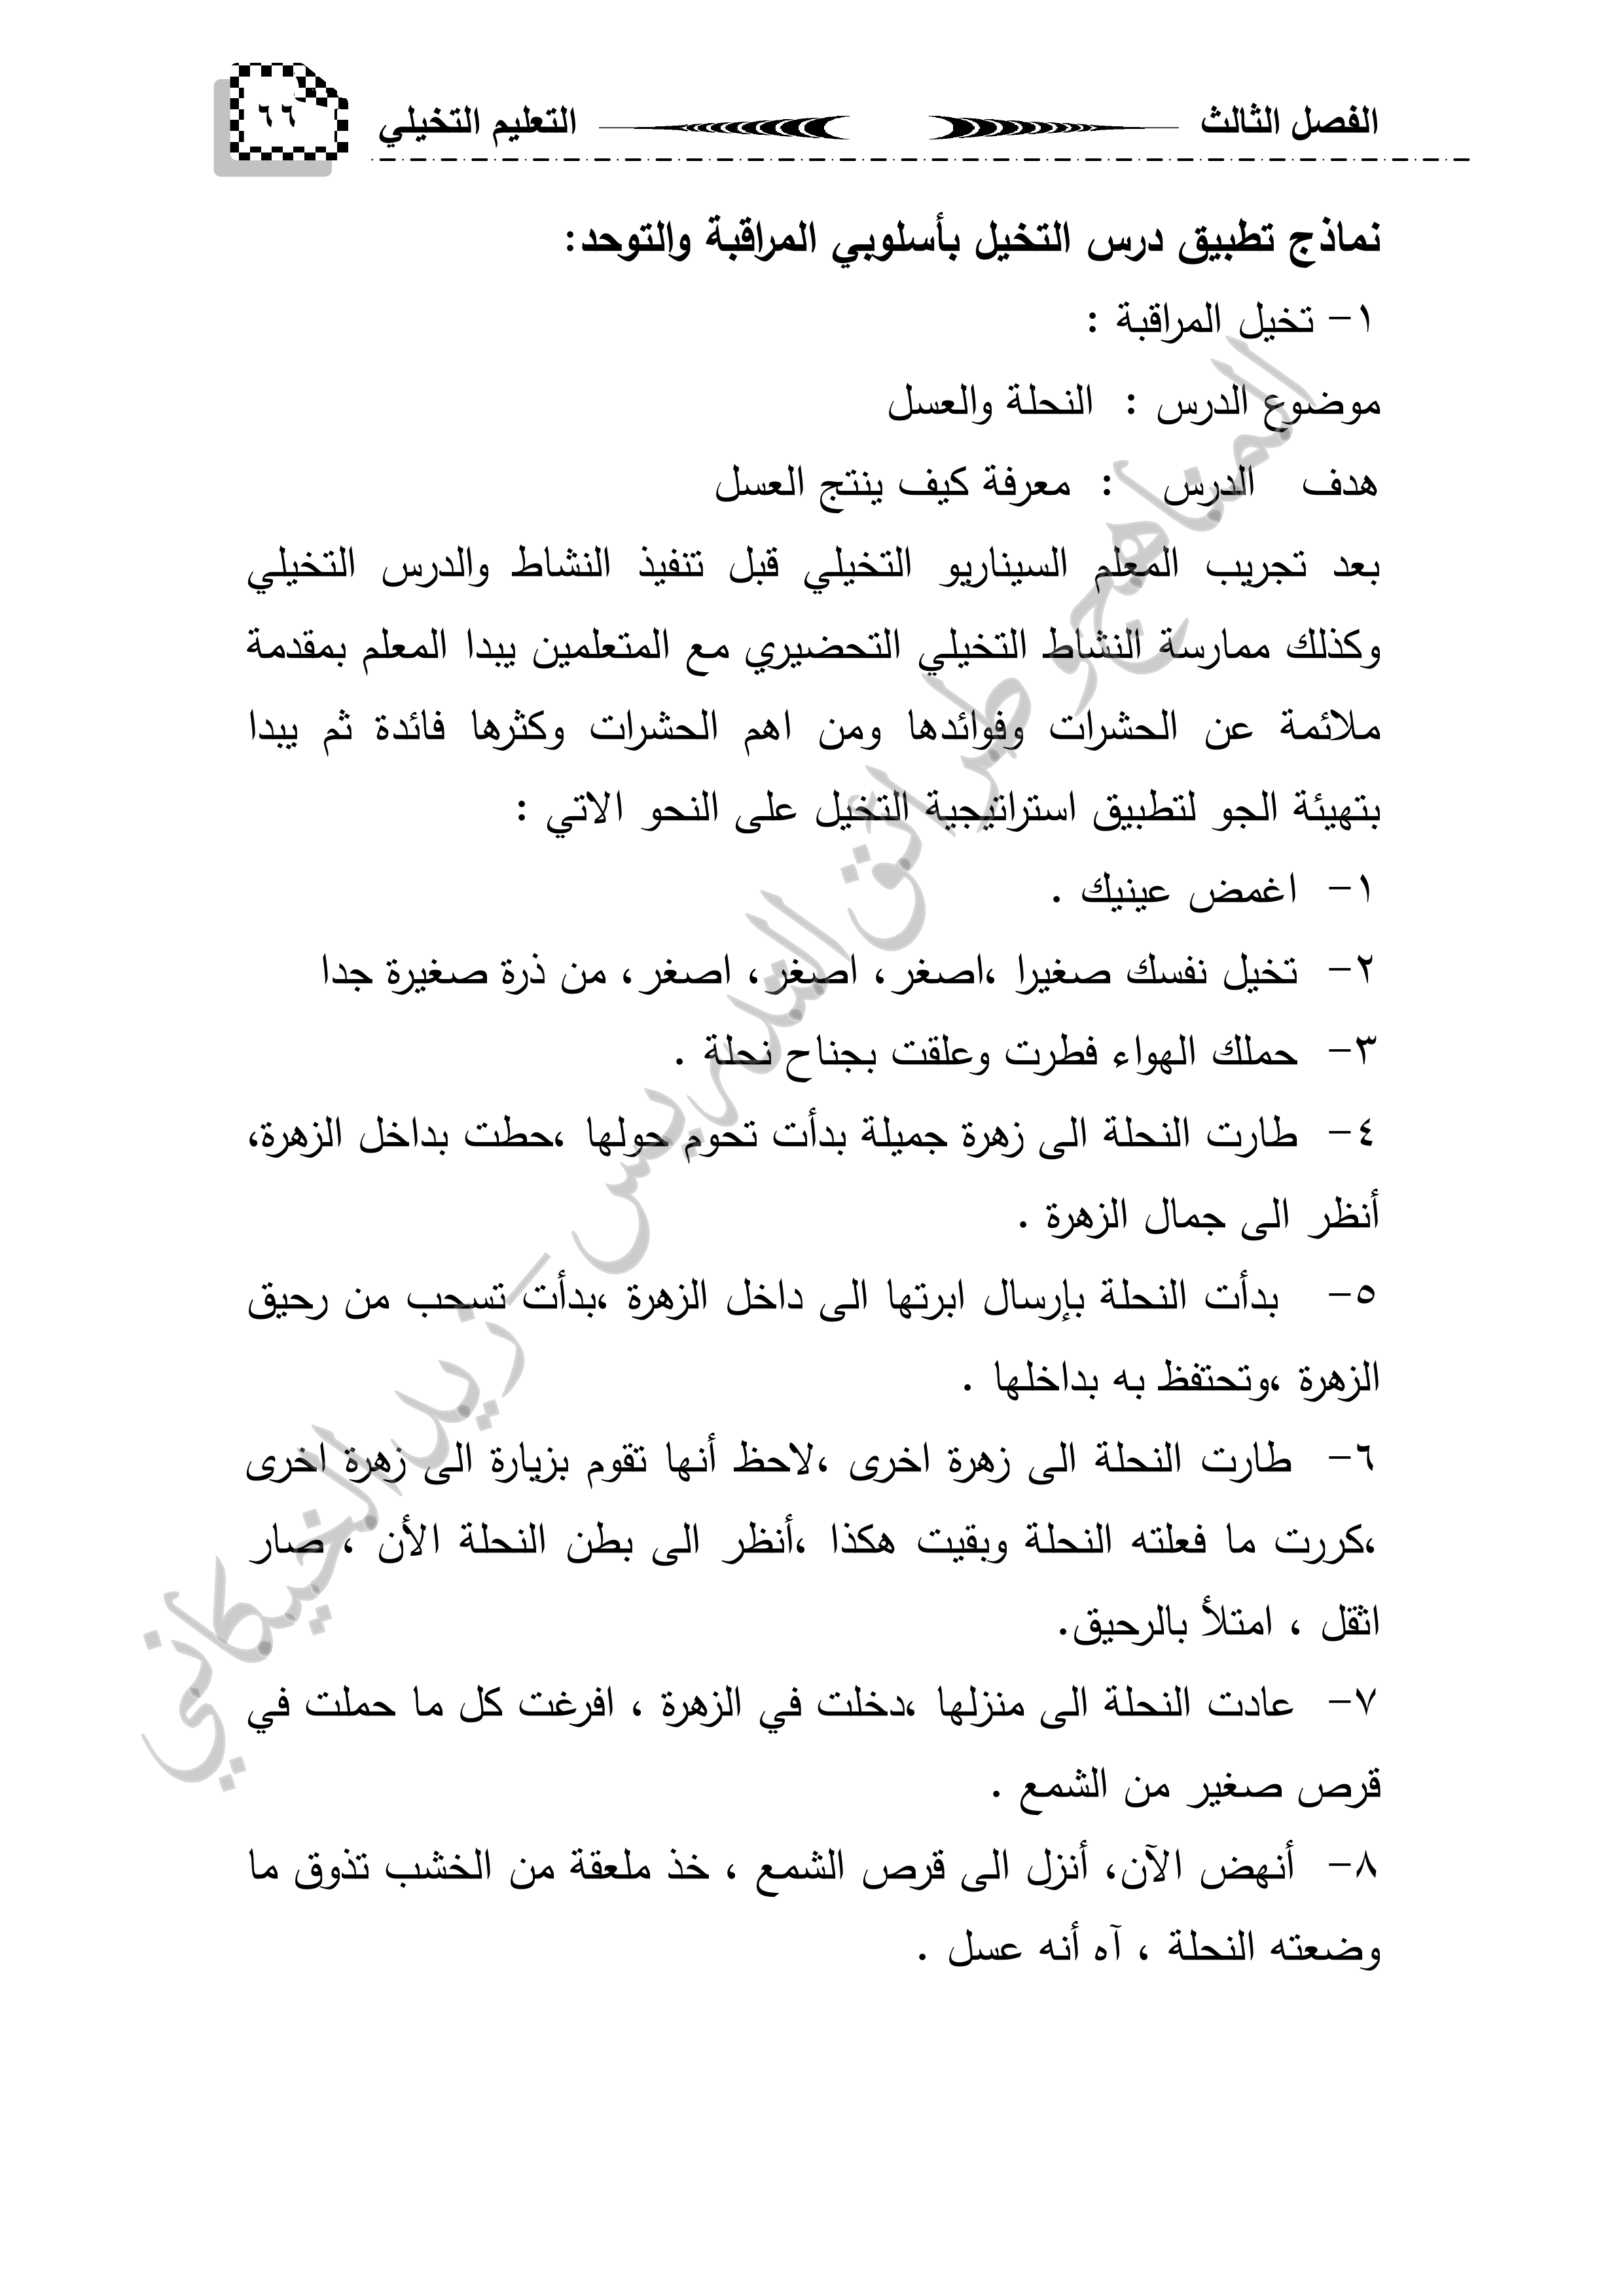 الفصل الثالث
التعليم التخيلي
٦٦
نماذج تطبيق درس التخيل بأسلوبي المراقبة والتوحد:
١- تخيل المراقبة :
موضوع الدرس : النحلة والعسل
هدف الدرس : معرفة كيف ينتج العسل
بعد تجريب المعلم السيناريو التخيلي قبل تنفيذ النشاط والدرس التخيلي
وكذلك ممارسة النشاط التخيلي التحضيري مع المتعلمين يبدا المعلم بمقدمة
ملائمة عن الحشرات وفوائدها ومن اهم الحشرات وكثرها فائدة ثم يبدا
بتهيئة الجو لتطبيق استراتيجية التخيل على النحو الاتي :
١- اغمض عينيك .
٢- تخيل نفسك صغيرا ،اصغر ، اصغر ، اصغر ، من ذرة صغيرة جدا
٣- حملك الهواء فطرت وعلقت بجناح نحلة .
٤- طارت النحلة الى زهرة جميلة بدأت تحوم حولها ،حطت بداخل الزهرة،
أنظر الى جمال الزهرة .
٥- بدأت النحلة بإرسال ابرتها الى داخل الزهرة ،بدأت تسحب من رحيق
الزهرة ،وتحتفظ به بداخلها .
٦- طارت النحلة الى زهرة اخرى ،لاحظ أنها تقوم بزيارة الى زهرة اخرى
،كررت ما فعلته النحلة وبقيت هكذا ،أنظر الى بطن النحلة الأن ، صار
اثقل ، امتلأ بالرحيق.
٧- عادت النحلة الى منزلها ،دخلت في الزهرة ، افرغت كل ما حملت في
قرص صغير من الشمع .
٨- أنهض الآن، أنزل الى قرص الشمع ، خذ ملعقة من الخشب تذوق ما
وضعته النحلة ، آه أنه عسل .
المناهج وطرائق التدريس - زيد الخيكاني